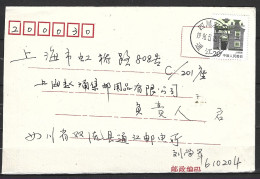 200030
上海市虹桥路808号
C/201座
上海赵涌集邮用品有限公司
负责人 启
四川省双流县通江邮电所
610204
邮政编码